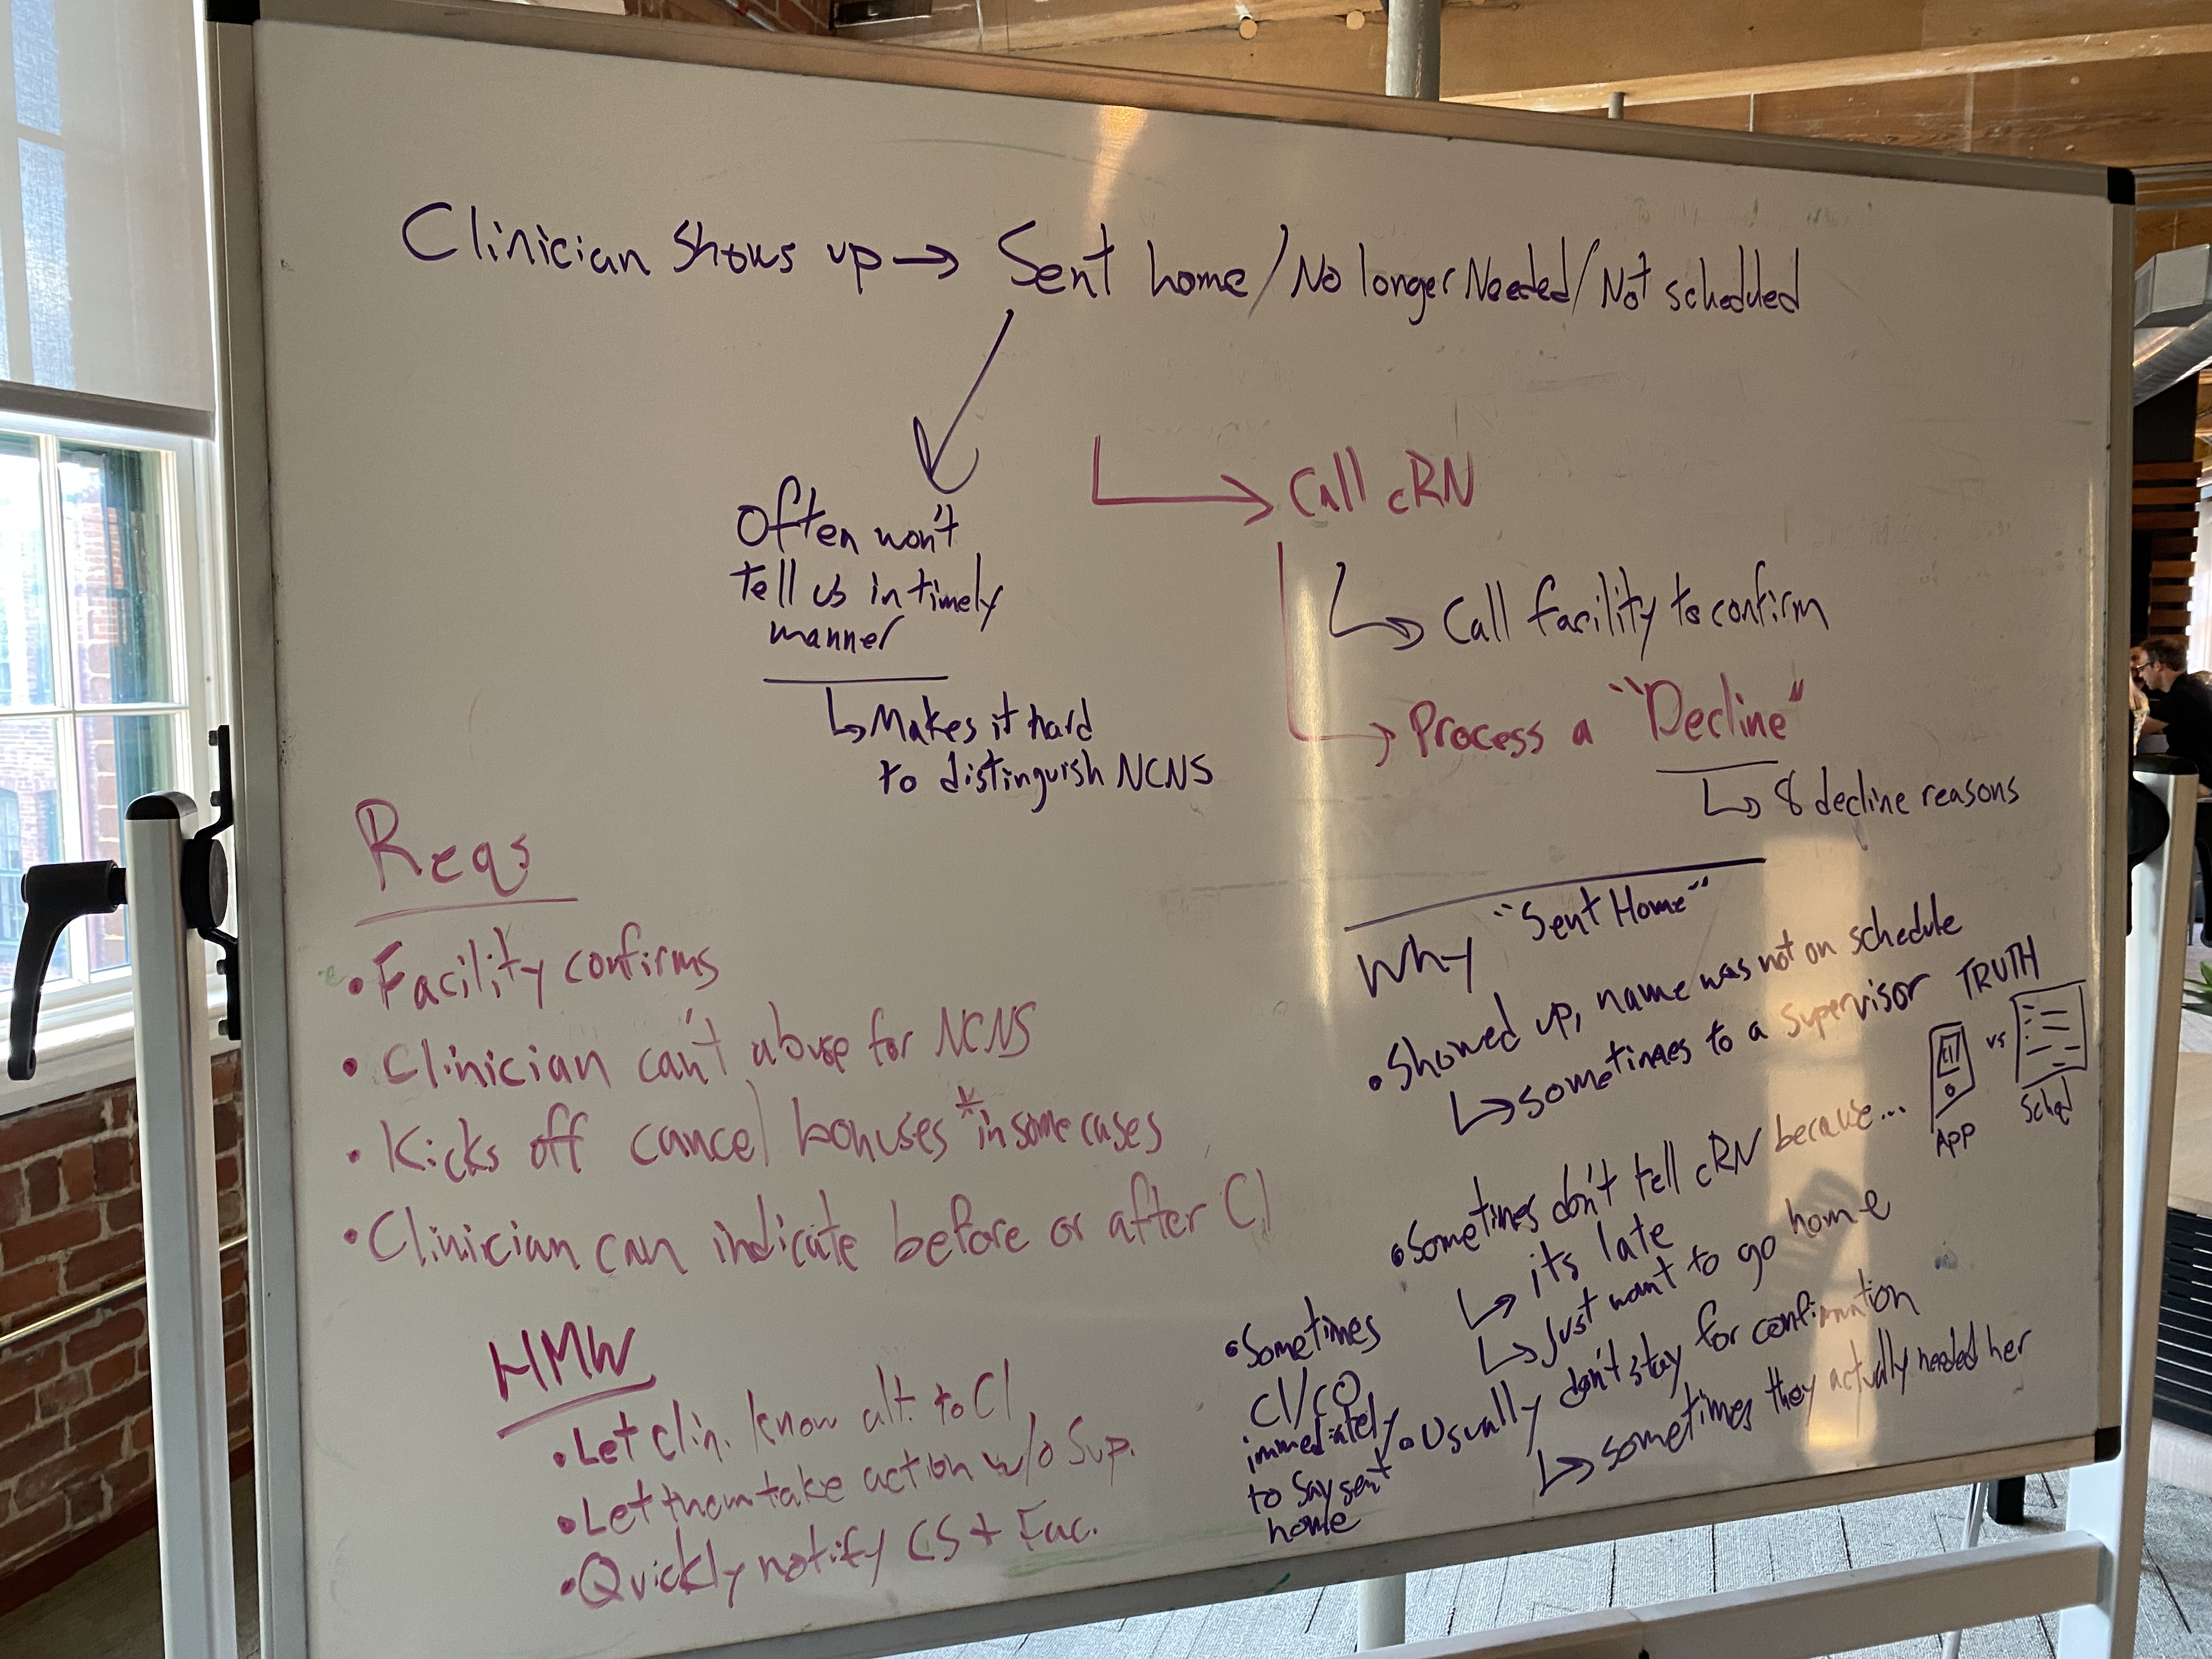 Clinician shows up → Sent home/No longer Needed/Not scheduled
Often won't
tell us in timely
manner
↳ Makes it hard
to distinguish NCNS
↳ Call cRN
↳ Call facility to confirm
↳ Process a "Decline"
↳ 8 decline reasons
Reqs
• Facility confirms
• Clinician can't abuse for NCNS
• Kicks off cancel bonuses *in some cases
• Clinician can indicate before or after CI
HMW
• Let clin. know alt. to CI
• Let them take action w/o Sup.
• Quickly notify CS + Fac.
Why "Sent Home"
• Showed up, name was not on schedule
↳ sometimes to a supervisor
TRUTH
CI
vs
APP
Sched
• Sometimes don't tell cRN because...
↳ its late
↳ Just want to go home
• Usually don't stay for confirmation
↳ sometimes they actually needed her
• Sometimes
CI/CO
immediately
to say sent
home